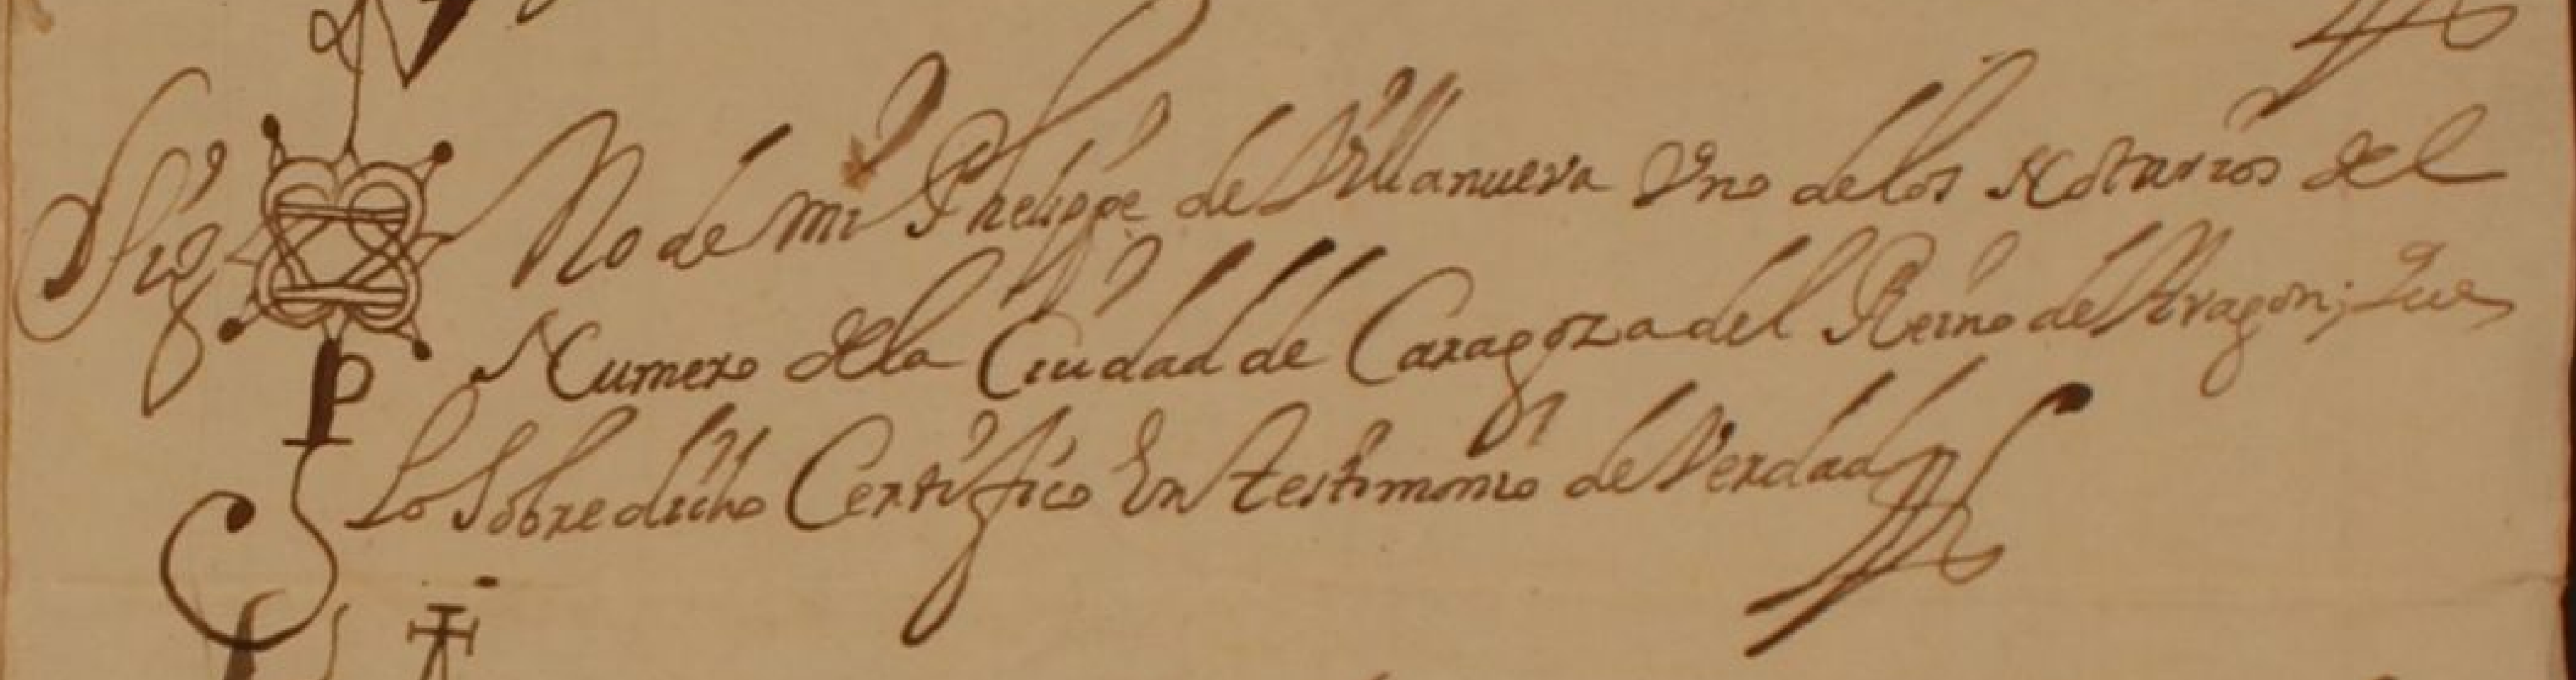 Sig No de mi Phelippe de Villanueva Vno delos Notarios del
Numero dela Ciudad de Caragoza del Reino de Aragon; Que
Lo Sobredicho Certifico En testimonio de Verdad